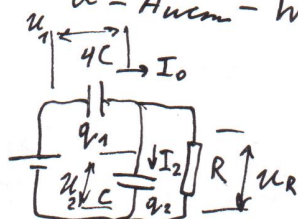 U = Aист - W
U₁
4C
I₀
q₁
I₂
R
U_R
U₂
C
q₂